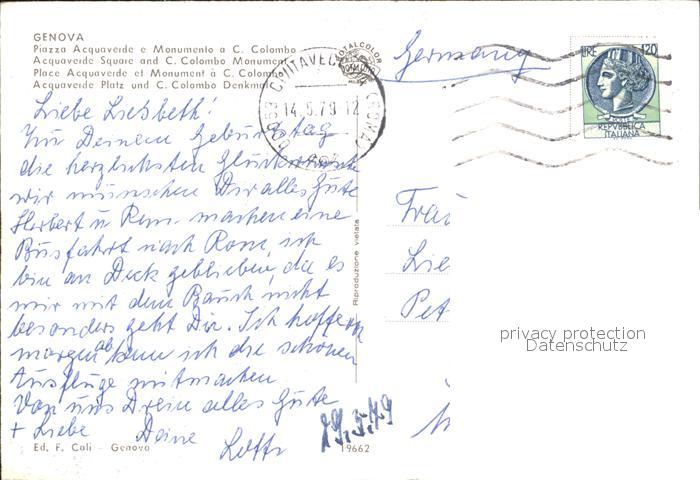 GENOVA
Piazza Acquaverde e Monumento a C. Colombo
Acquaverde Square and C. Colombo Monument
Place Acquaverde et Monument à C. Colombo
Acquaverde Platz und C. Colombo Denkmal
Germany
LIRE 120
REPVBBLICA
ITALIANA
CIVITAVECCHIA
(ROMA)
14.5.79 12
Liebe Liesbeth!
Zu Deinem Geburtstag
die herzlichsten Glückwünsche
wir wünschen Dir alles Gute
Herbert u. Rem. machen eine
Busfahrt nach Rom, ich
bin an Deck geblieben, da es
mir mit dem Bauch nicht
besonders geht Dir. Ich hoffe
morgen ab kann ich die schönen
Ausflüge mitmachen
Von uns Drein alles Gute
+ Liebe Deine
Lotti
29.5.79
Frau
Lie
Pet
Riproduzione vietata
privacy protection
Datenschutz
Ed. F. Cali - Genova
19662